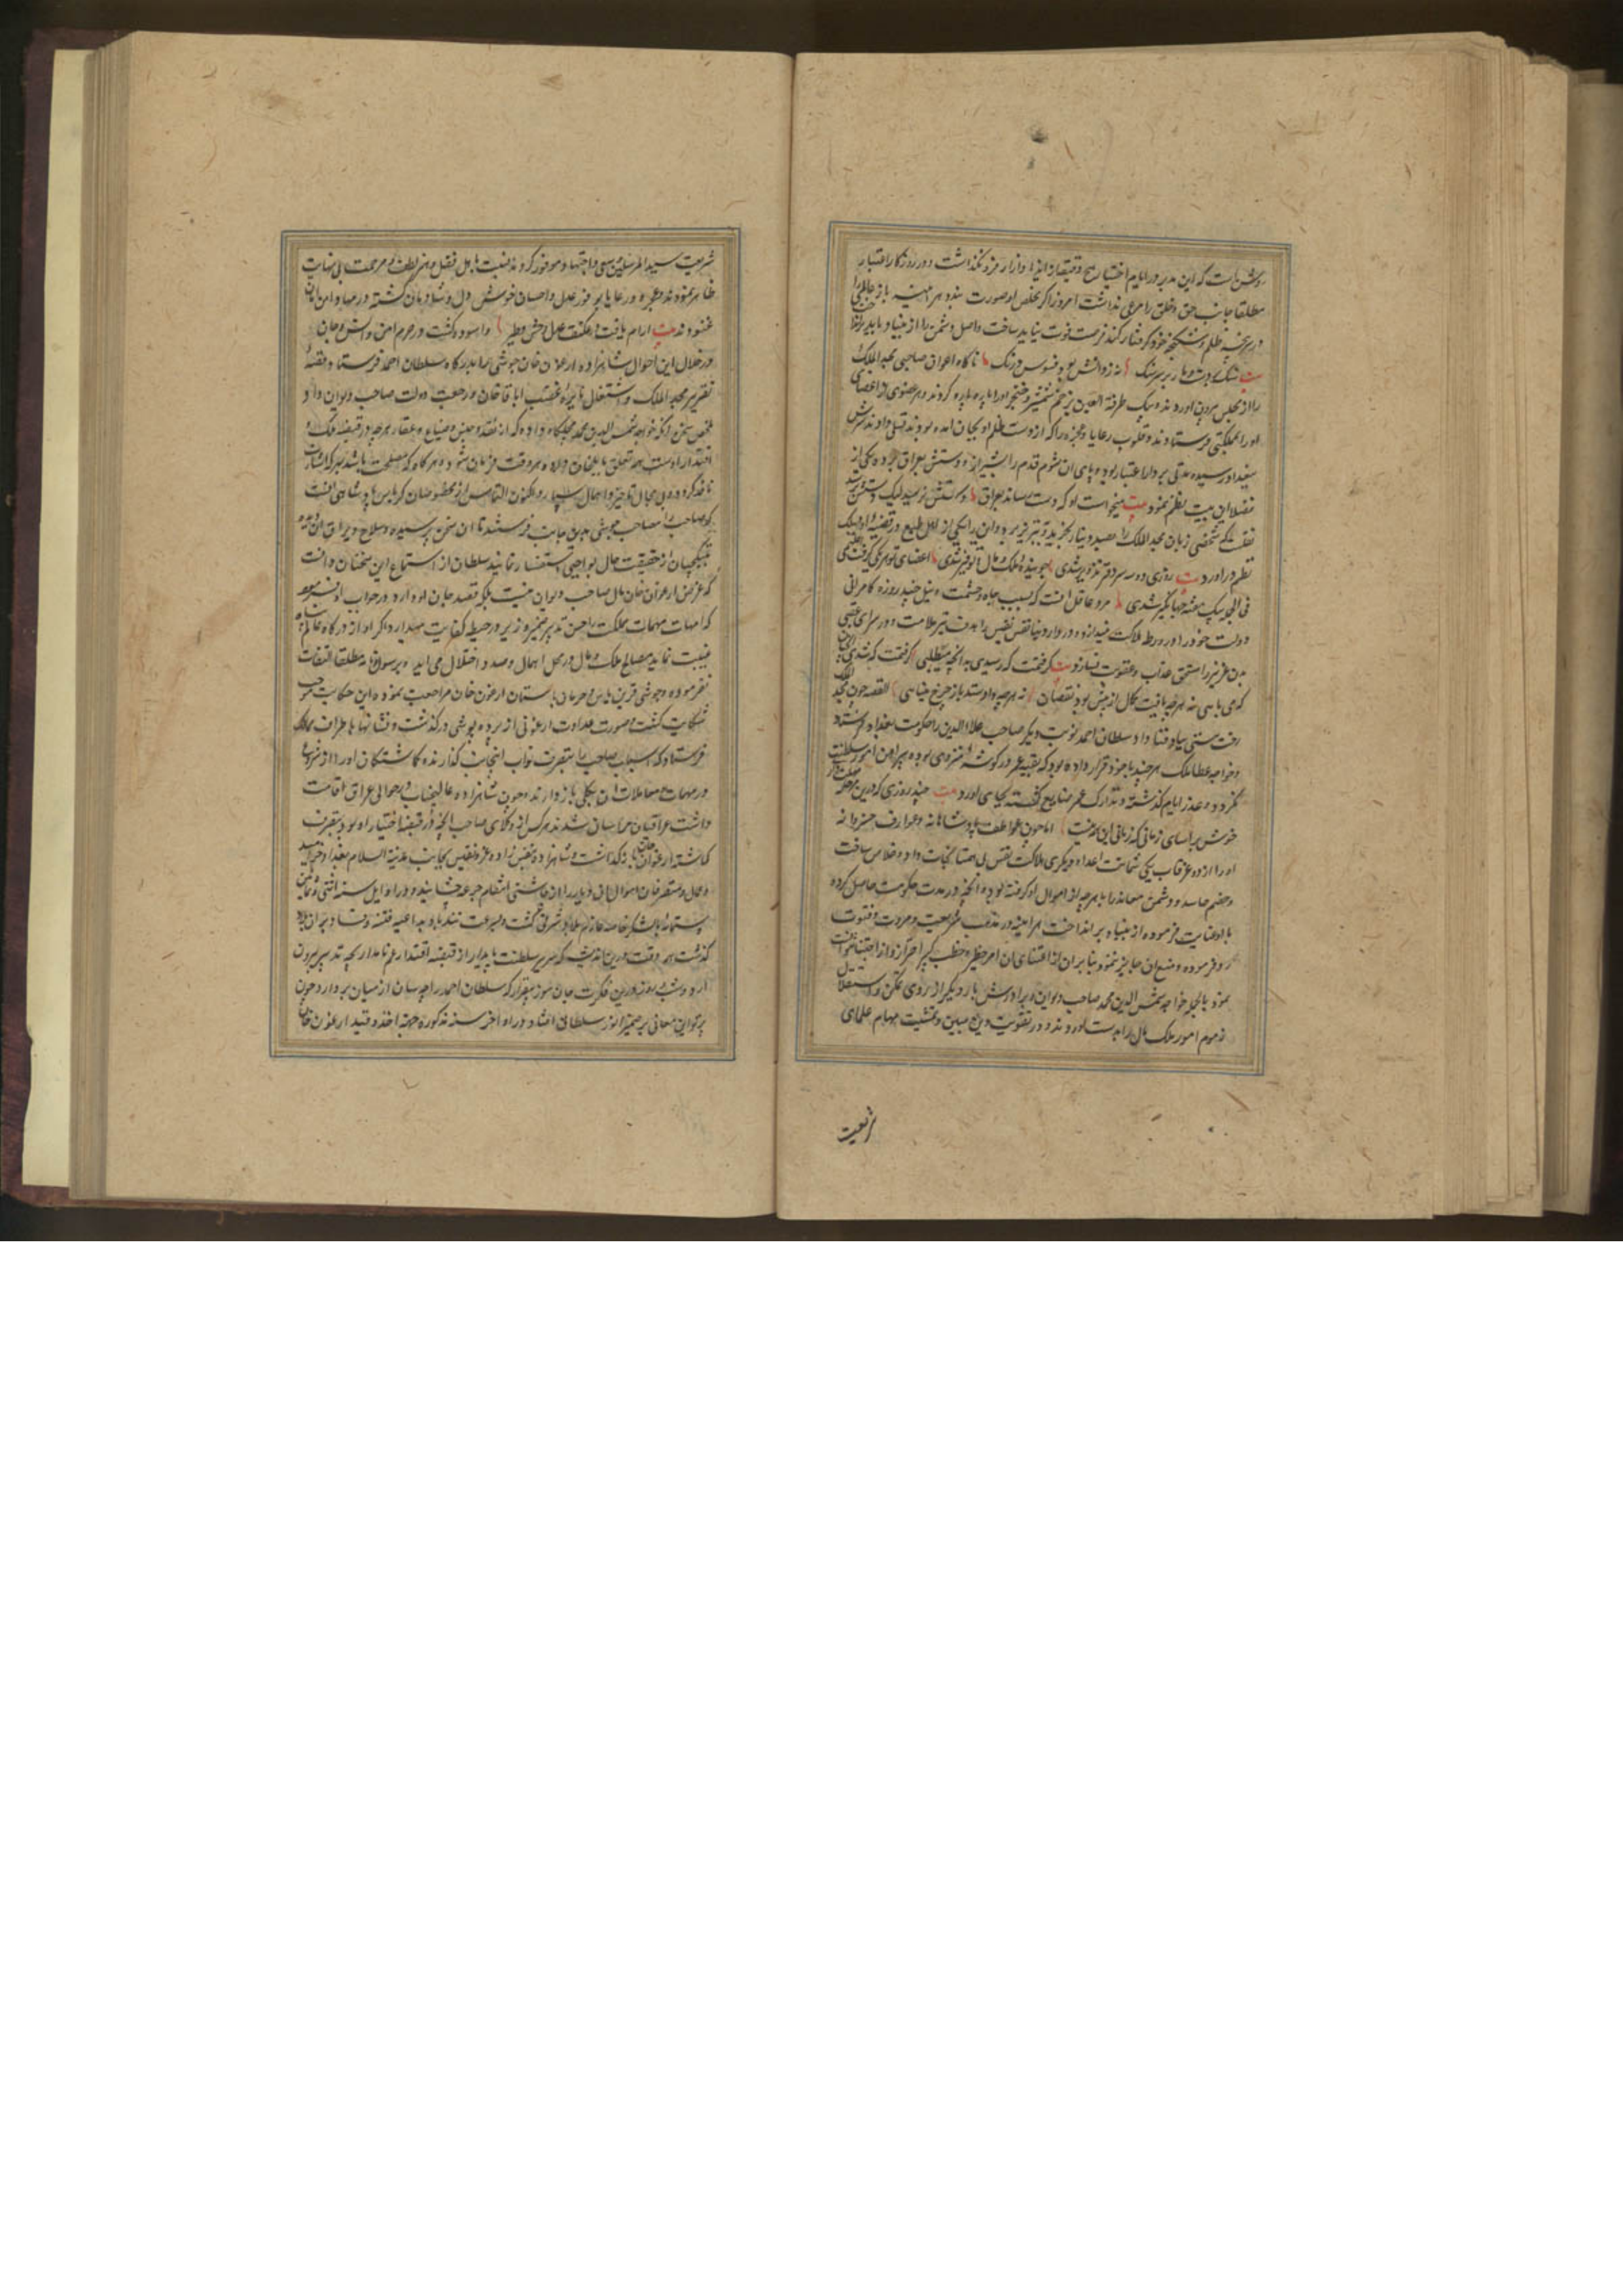 روشن است که این مدبر در ایام اختیار هیچ دقیقه از ایذا و ازار فرو نکذاشت و در روزکار اقتدار
مطلقا جانب حق و خلق را مرعی نداشت امروز اکر مخلص او صورت بندد هر اینه باز عالمی را
در سرپنجه ظلم و شکنجه خود کرفتار کند فرصت فوت نباید ساخت و اصل دشمن را از بنیاد باید برانداخت
بیت سنک بر دست و مار بر سر سنک نه ز دانش بود فسوس و درنک ناکاه اعوان صاحبی مجد الملک
را از مجلس بیرون اوردند و بیک طرفة العین بزخم شمشیر و خنجر او را پاره پاره کردند و هر عضوی از اعضای
او را بمملکتی فرستادند و قلوب رعایا و عجزه را که از دست ظلم او بجان امده بودند تسلی دادند سرش
ببغداد رسیده مدتی بر دار اعتبار بود و پای ان شوم قدم را بشیراز و دستش بعراق برده یکی از
فضلا این بیت نظم نمود بیت میخواست او که دست رساند بعراق دستش نرسید لیک دستش برسید
نقلست که شخصی زبان مجد الملک را بصد دینار بخرید و بتبریز برد و ان را یکی از اهل طبع در قضیه او بسلک
نظم در اورد بیت روزی دو سه سردفتر تزویر شدی جوینده ملک و مال و توفیر شدی اعضای تو هر یکی کرفت اقلیمی
فی الجمله بیک هفته جهانکیر شدی مرد عاقل انست که بسبب جاه و حشمت و نیل چند روزه کامرانی
دولت خود را در ورطه هلاکت نیندازد و در دار دنیا نفس نفیس را هدف تیر ملامت و در سرای عقبی
بدن عزیز را مستحق عذاب و عقوبت نسازد بیت کرفتمت که رسیدی بدانچه میطلبی کرفتمت که شدی انچنان
که می بایی نه هر چه یافت کمال از پیش بود نقصان نه هر چه داد ستد باز چرخ مینایی القصه چون مجد الملک
رخت هستی بباد فنا داد سلطان احمد نوبت دیکر صاحب علاء الدین را حکومت بغداد فرستاد
و خواجه عطا ملک هر چند با خود قرار داده بود که بقیه عمر در کوشه منزوی بوده پیرامن امور سلطنت
نکردد و عذر ایام کذشته و تدارک عمر ضایع کشته بجای اورد بیت چند روزی که درین مرحله مهلت داری
خوش براسای زمانی که زمانی این همه نیست اما چون عواطف پادشاهانه و عوارف خسروانه
او را از دو غرقاب یکی شماتت اعدا و دیکری هلاکت نفس بی همتا نجات داده و خلاص ساخت
و خصم حاسد و دشمن معاند را با هر چه از اموال او کرفته بود و انچه در مدت حکومت حاصل کرده
با او عنایت فرموده از بنیاد بر انداخت هر اینه در مذهب شریعت و مروت و فتوت
رد فرموده و منع ان جایز ننمود بنابران از اقتنای ان امر خطیر و خطب کبیر احتراز و اجتناب نتوانست
نمود بالجمله خواجه شمس الدین محمد صاحب دیوان و برادرش بار دیکر از روی تمکن و استقلال
زموم امور ملک و مال را بدست اوردند و در تقویت دین مبین و تمشیت مهام علمای
شریعت
شریعت سید المرسلین سعی و اجتهاد موفور کردند و نسبت باهل فضل و هنر لطف و مرحمت بی نهایت
ظاهر نمودند و عجزه و رعایا بوفور عدل و احسان خوش دل و شادمان کشته در مهاد امن و امان
غنودند بیت ارام یافت در کنف عدل وحش و طیر و اسوده کشت در حرم امن انس و جان
در خلال این احوال شاهزاده ارغون خان جوشی را بدرکاه سلطان احمد فرستاد و قصه
تقریر مجد الملک و اشتعال نایره غضب اباقا خان و رجعت دولت صاحب دیوان داد و
ملخص سخن انکه خواجه شمس الدین محمد مجلکاه داده که از نقد و جنس و ضیاع و عقار هر چه در قبضه ملک و
اقتدار اوست همه تعلق بایلخان دارد و هر وقت فرمان شود و هر کاه که مصلحت باشد بهر که اشارت
نافذ کردد و بی مجال تاخیر و اهمال سپارد و اکنون التماس از محظوضان کریاس پادشاهی انست
که صاحب را مصاحب جوشی بدین جانب فرستند تا ان سخن پرسیده و سلاح و یراق ان بدو
بتیکچیان از حقیقت حال بواجبی استفسار نمایند سلطان از استماع این سخنان دانست
که غرض ارغون خان مال صاحب دیوان نیست بلکه قصد جان او دارد در جواب او فرمود
که امهات مهمات مملکت را حسن تدبیر ضمیر وزیر در حیطه کفایت میدارد اکر او از درکاه عالم پناه
غیبت نماید مصالح ملک و مال در محل اهمال و صدد اختلال می اید و برسولانه مطلقا التفات
نفرموده و جوشی قرین یاس و حرمان باستان ارغون خان مراجعت نموده این حکایت موجب
شکایت کشت و صورت عداوت ارغونی از پرده پوشی در کذشت و نشانها باطراف ممالک
فرستاد که اسباب صاحب را بتصرف نواب انجانب کذارند و کماشتکان او را از شروع
در مهمات و معاملات ان بکلی باز دارند و چون شاهزاده عالیجناب در حوالی عراق اقامت
داشت عراقیان هراسان شدند هر کس از وکلای صاحب انچه در قبضه اختیار او بود بتصرف
کماشته ارغون خان باز کذاشت و شاهزاده بنفس نفیس بجانب مدینة السلام بغداد خرامید
و عمال و متصرفان اموال ان دیار را از چاشنی انتقام جرعه چشانید و در اوایل سنه اثنی و ثمانین
و ستمائه با لشکر خاصه عازم بلاد شرقی کشت و بسرعت تندباد بداعیه فتنه و فساد بر ان بلاد
کذشت همه وقت درین اندیشه که سریر سلطنت پایدار از قبضه اقتدار عم نامدار بچه تدبیر بیرون
ارد و شب و روز درین فکرت جان سوز بیقرار که سلطان احمد را چه سان از میان بردارد و چون
پرتو این معانی بر ضمیر انور سلطانی افتاد در اواخر سنه مذکوره جهة اخذ و قید ارغون خان